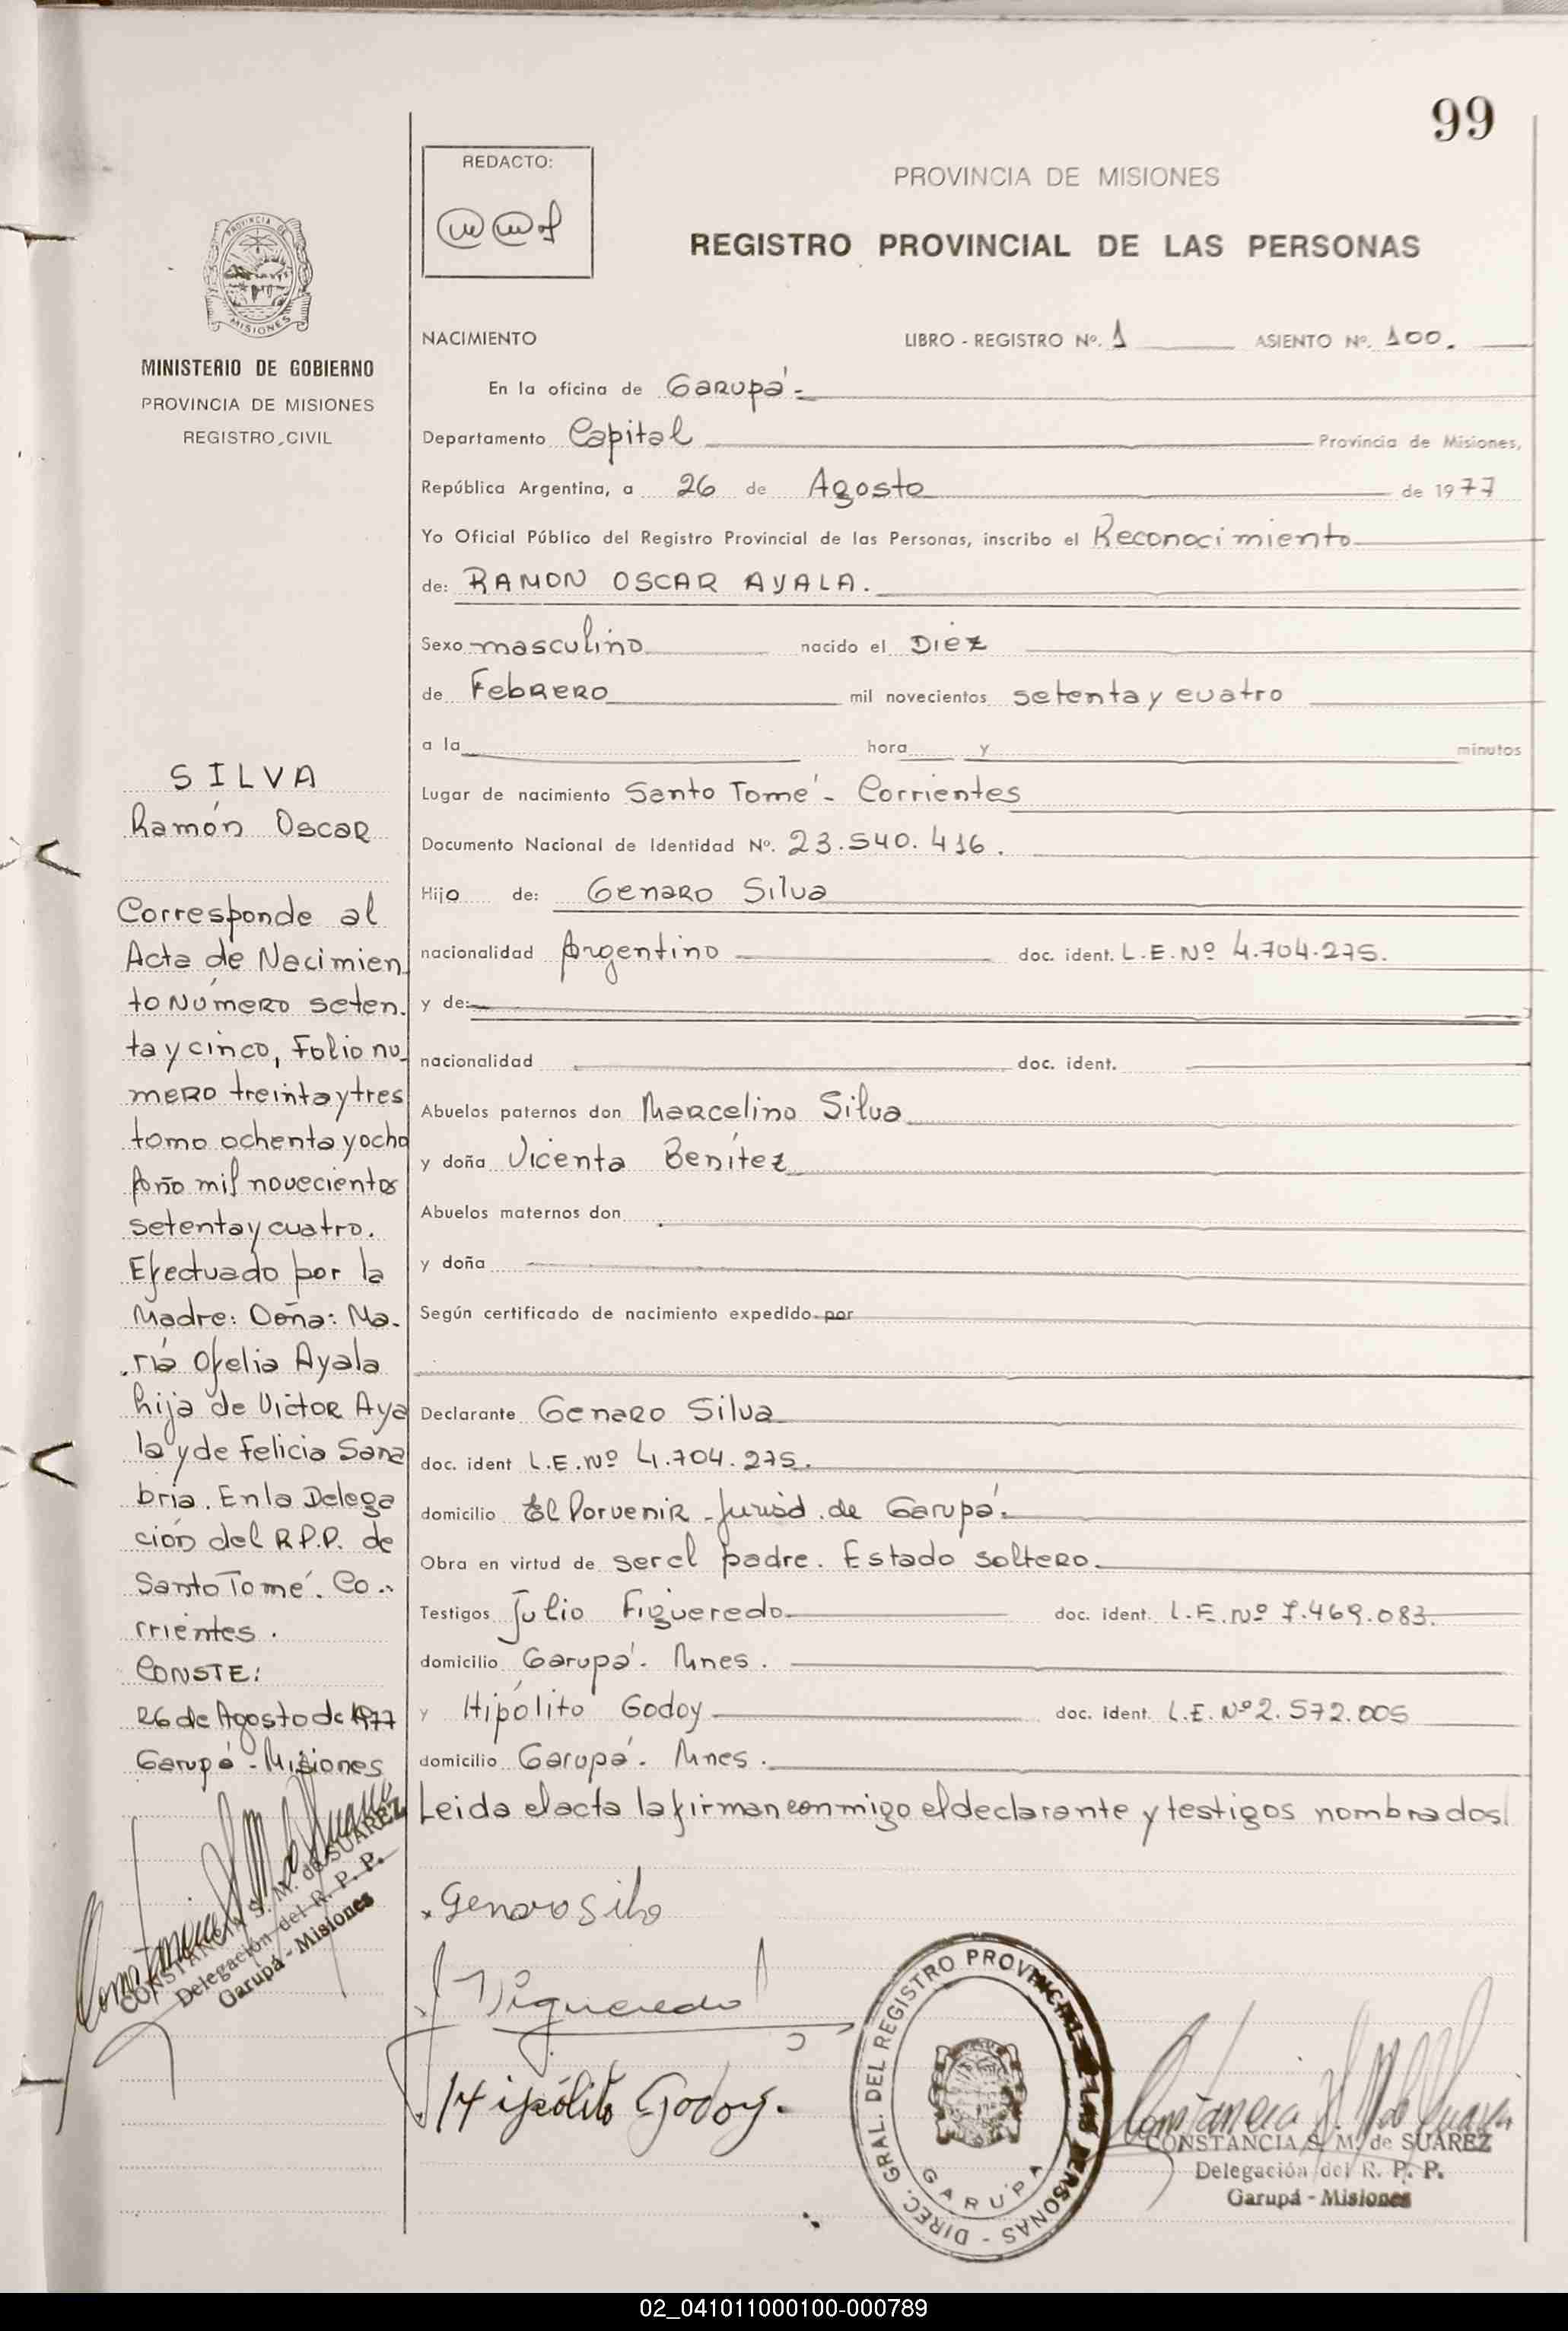 99
REDACTO:
PROVINCIA DE MISIONES
REGISTRO PROVINCIAL DE LAS PERSONAS
PROVINCIA DE
MISIONES
MINISTERIO DE GOBIERNO
PROVINCIA DE MISIONES
REGISTRO CIVIL
NACIMIENTO LIBRO - REGISTRO Nº. 1 ASIENTO Nº. 100.
En la oficina de Garupá.-
Departamento Capital Provincia de Misiones,
República Argentina, a 26 de Agosto de 1977
Yo Oficial Público del Registro Provincial de las Personas, inscribo el Reconocimiento
de: RAMON OSCAR AYALA.
Sexo masculino nacido el Diez
de Febrero mil novecientos setenta y cuatro
a la hora y minutos
Lugar de nacimiento Santo Tomé - Corrientes
Documento Nacional de Identidad Nº. 23.540.416.
Hijo de: Genaro Silva
nacionalidad Argentino doc. ident. L.E.Nº 4.704.275.
y de:
nacionalidad doc. ident.
Abuelos paternos don Marcelino Silva
y doña Vicenta Benítez
Abuelos maternos don
y doña
Según certificado de nacimiento expedido por
Declarante Genaro Silva
doc. ident L.E.Nº 4.704.275.
domicilio El Porvenir - Jurisd. de Garupá.
Obra en virtud de ser el padre. Estado soltero.
Testigos Julio Figueredo doc. ident. L.E.Nº 7.469.083.
domicilio Garupá. Mnes.
y Hipólito Godoy doc. ident. L.E. Nº 2.572.005
domicilio Garupá. Mnes.
Leida el acta la firman conmigo el declarante y testigos nombrados.
SILVA
Ramón Oscar
Corresponde al
Acta de Nacimien
to Número seten.
ta y cinco, Folio nu
mero treinta y tres
tomo ochenta y ocho
Año mil novecientos
setenta y cuatro.
Efectuado por la
Madre: Doña: Ma.
ría Ofelia Ayala
hija de Victor Aya
la y de Felicia Sana
bria. En la Delega
ción del R.P.P. de
Santo Tomé. Co..
rrientes.
CONSTE:
26 de Agosto de 1977
Garupá - Misiones
CONSTANCIA S. M. de SUAREZ
Delegación del R. P. P.
Garupá - Misiones
Genaro Silva
J Figueredo
Hipólito Godoy.
DIREC. GRAL. DEL REGISTRO PROVINCIAL DE LAS PERSONAS -
GARUPA
CONSTANCIA S. M. de SUAREZ
Delegación del R. P. P.
Garupá - Misiones
02_041011000100-000789